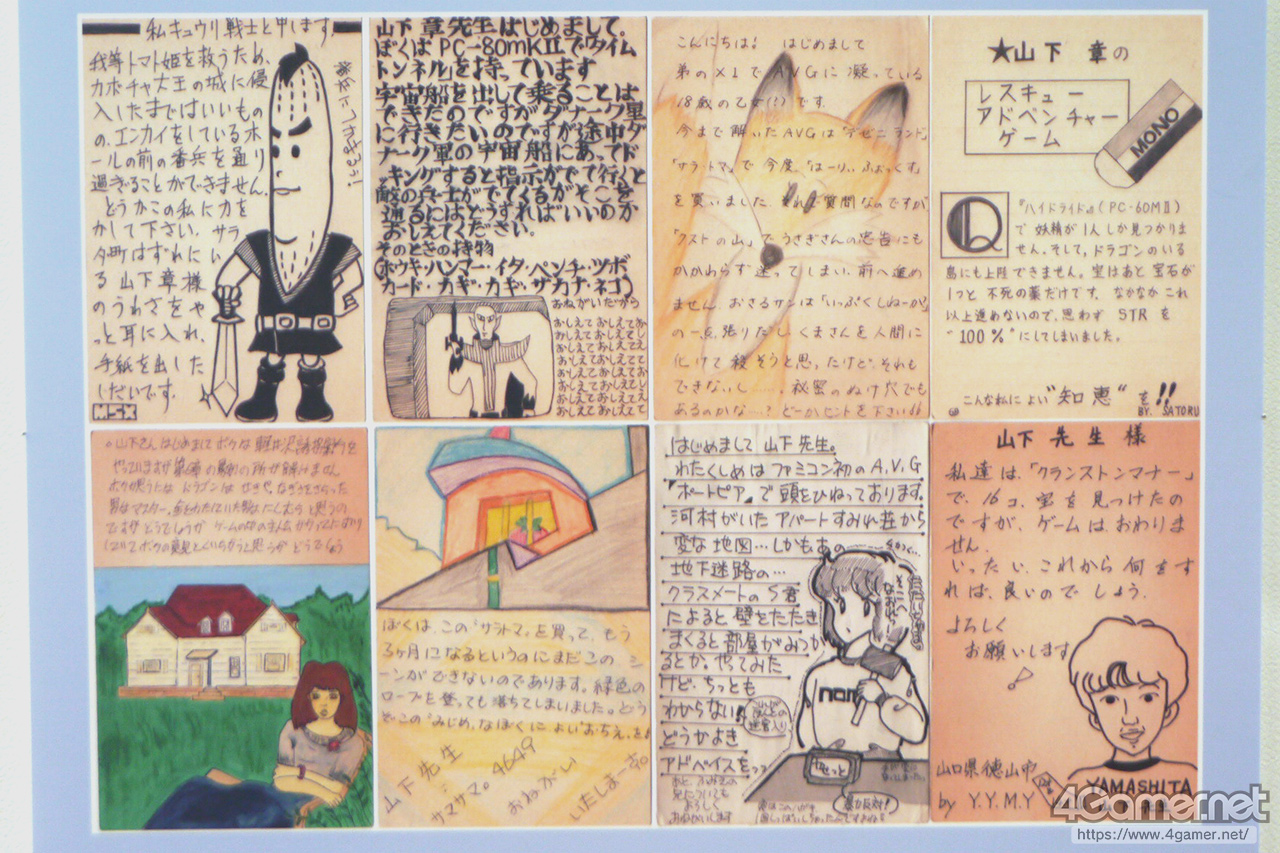 私キュウリ戦士と申します。
我等トマト姫を救うため、
カボチャ大王の城に侵
入したまではいいもの
の、エンカイをしているホ
ールの前の番兵を通り
過ぎることができません。
どうかこの私に力を
かして下さい。サラ
ダ町はずれにい
る山下章様
のうわさをや
っと耳に入れ、
手紙を出した
しだいです。
MSX
山下章先生はじめまして。
ぼくはPC-80mkIIでタイム
トンネル」を持っています
宇宙船を出して乗ることは
できたのですがダナーク星
に行きたいのですが途中ダ
ナーク軍の宇宙船にあってド
ッキングすると指示がでて行くと
敵の兵士がでてくるがそこを
通るにはどうすればいいのか
おしえてください。
そのときの持物
(ホウキ・ハンマー・イタ・ペンチ・ツボ
カード・カギ・カギ・サカナ・ネコ)
おねがいだから
おしえておしえてお
しえておしえておし
えておしえて
こんにちは! はじめまして
弟のX1でAVGに凝っている
18歳の乙女(?)です。
今まで解いたAVGは「デゼニランド」
「サラトマ」で今度「はーりぃふぉっくす」
を買いました。それで質問なのですが
「クストの山」でうさぎさんの忠告にも
かかわらず迷ってしまい、前へ進め
ません。おさるサンは「いっぷくしねーか」
の一点張りだし、くまさんを人間に
化けて殺そうと思ったけど、それも
できないし……。秘密のぬけ穴でも
あるのかな…?どーかヒントを下さい
★山下章の
レスキュー
アドベンチャー
ゲーム
MONO
Q
『ハイドライド』(PC-60MII)
で妖精が1人しか見つかりま
せん。そして、ドラゴンのいる
島にも上陸できません。宝はあと宝石が
1つと不死の薬だけです。なかなかこれ
以上進めないので、思わず STR を
"100%"にしてしまいました。
こんな私によい"知恵"を!!
BY. SATORU
山下さんはじめましてボクは軽井沢誘拐案内を
ぼくは、この"サラトマ"を買って、もう
3ヶ月になるというのにまだこのシ
ーンができないのであります。緑色の
ロープを登っても落ちてしまいました。どう
ぞこの"みじめ"なぼくによい"おちえ"を
山下先生
サマサマ。4649
おねがい
いたしまーす。
はじめまして山下先生。
わたくしめはファミコン初のA.V.G
『ポートピア』で頭をひねっております。
河村がいたアパートすみれ荘から
変な地図…しかもあの
地下迷路の…
クラスメートのS君
によると壁をたたき
まくると部屋がみつか
るとか。やってみた
けど、ちっとも
わからない!!
どうかよき
アドバイスをっっ
山下先生様
私達は、「クランストンマナー」
で、16コ、宝を見つけたの
ですが、ゲームはおわりま
せん。
いったい、これから何をす
れば、良いのでしょう。
よろしく
お願いします
山口県徳山市
by Y.Y.M.Y
YAMASHITA
4Gamer.net
https://www.4gamer.net/